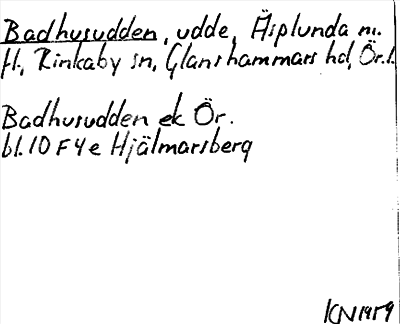 Badhusudden, udde, Äsplunda m.
fl., Rinkaby sn, Glanshammars hd, Ör.l.
Badhusudden ek Ör.
bl. 10 F 4 e Hjälmarsberg
KN 1959